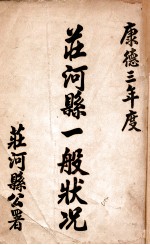 康德三年度
莊河縣一般狀况
莊河縣公署